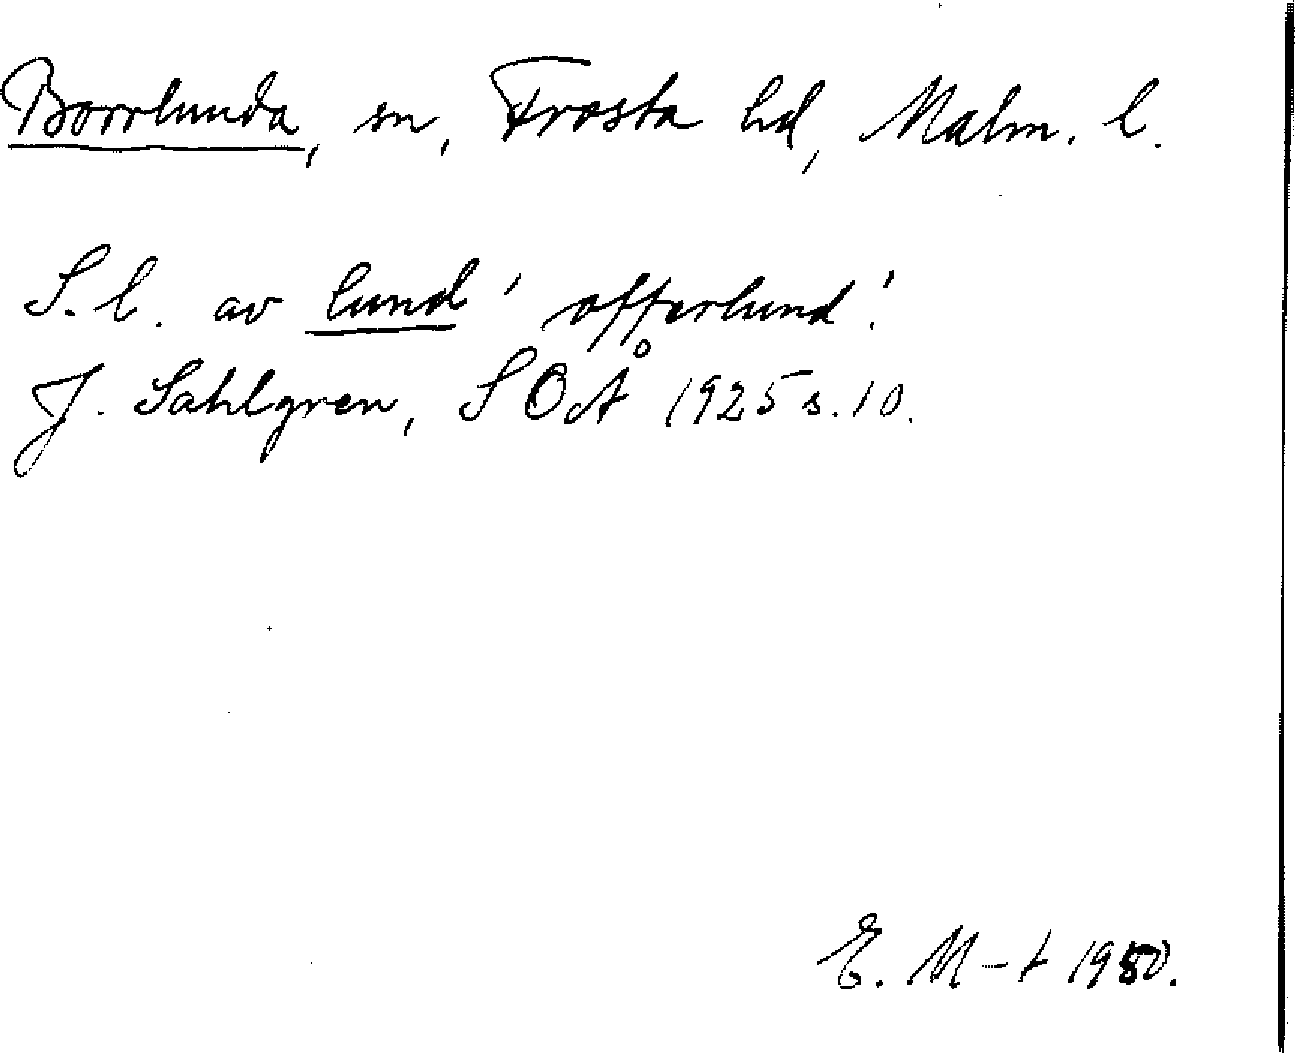 Borrlunda, sn, Frosta hd, Malm. l.
S. l. av lund 'offerlund'.
J. Sahlgren, SOÅ 1925 s. 10.
E. M-t 1950.